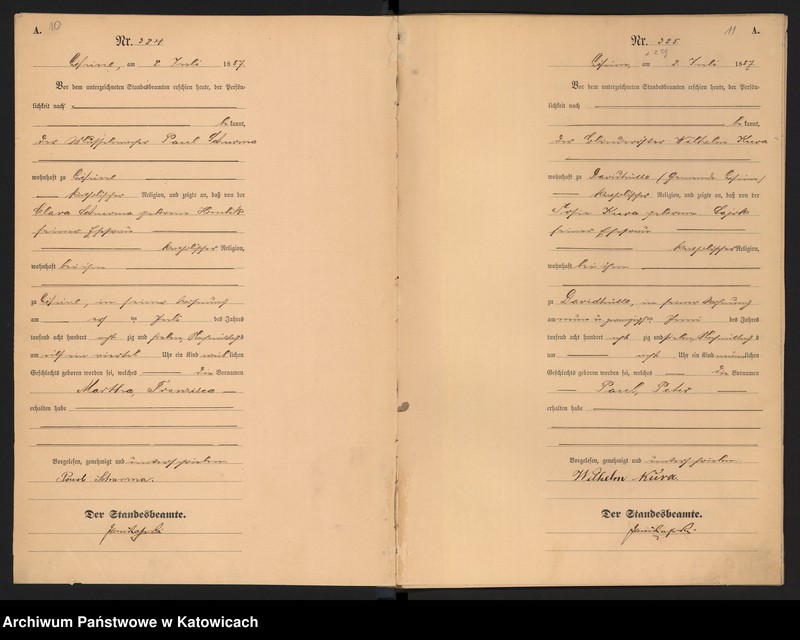 A. 10
Nr. 324
am 2 Juli 1887
Vor dem unterzeichneten Standesbeamten erschien heute, der Persön-
lichkeit nach
be kannt,
der Paul
wohnhaft zu
katholischer Religion, und zeigte an, daß von der
Clara geborene
seiner Ehefrau
katholischer Religion,
wohnhaft bei ihm
zu in seiner Wohnung
am ten Juli des Jahres
tausend acht hundert acht zig und sieben, Nachmittags
um elf ein viertel Uhr ein Kind weib lichen
Geschlechts geboren worden sei, welches die Vornamen
Martha, Franzisca
erhalten habe
Vorgelesen, genehmigt und unterschrieben
Der Standesbeamte.
11 A.
Nr. 325
am 2 Juli 1887
Vor dem unterzeichneten Standesbeamten erschien heute, der Persön-
lichkeit nach
be kannt,
der Wilhelm Kura
wohnhaft zu Davidhütte (Gemeinde
katholischer Religion, und zeigte an, daß von der
Kura geborene
seiner Ehefrau
katholischer Religion,
wohnhaft bei ihm
zu Davidhütte, in seiner Wohnung
am neun u. zwanzigs ten Juni des Jahres
tausend acht hundert acht zig und sieben, Nachmittags
um acht Uhr ein Kind männ lichen
Geschlechts geboren worden sei, welches die Vornamen
Paul, Peter
erhalten habe
Vorgelesen, genehmigt und unterschrieben
Wilhelm Kura.
Der Standesbeamte.
Archiwum Państwowe w Katowicach